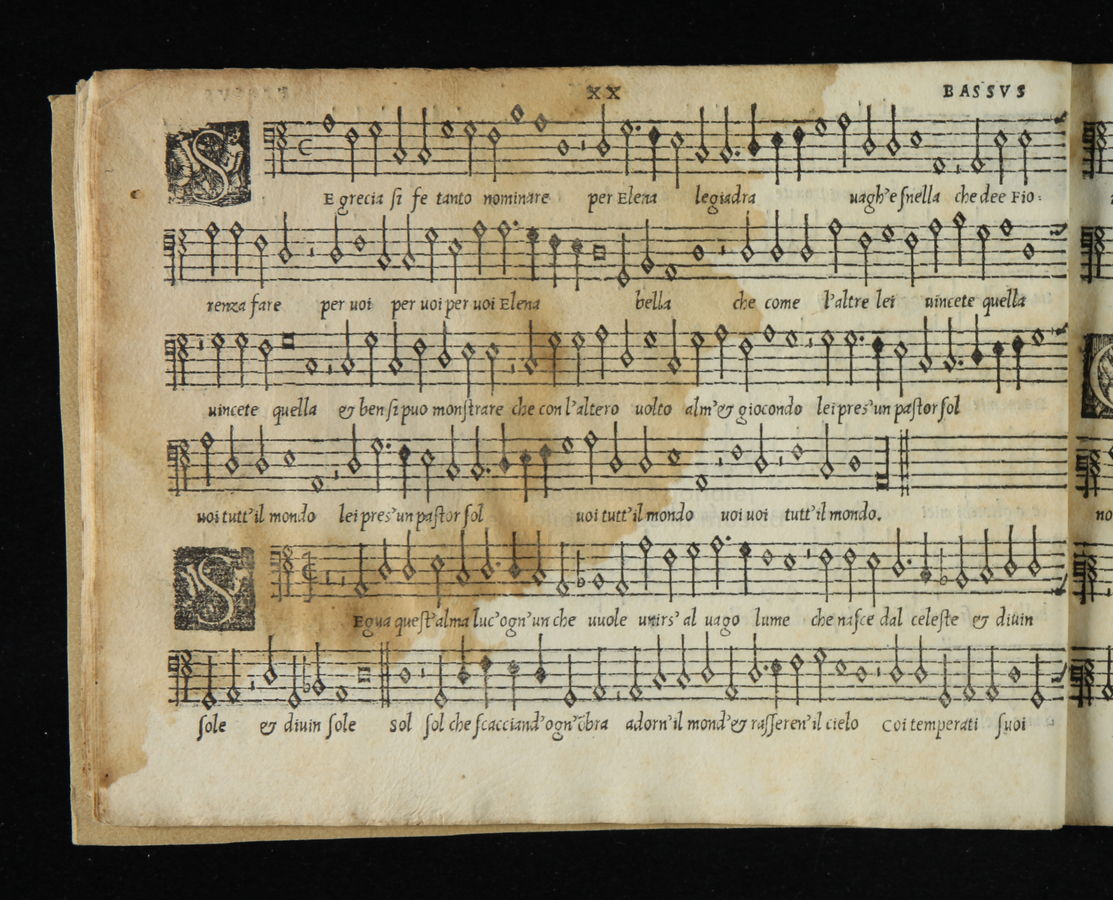 XX BASSVS
SE grecia si fe tanto nominare per Elena legiadra uagh'e snella che dee Fio-
renza fare per uoi per uoi per uoi Elena bella che come l'altre lei uincete quella
uincete quella & ben si puo monstrare che con l'altero uolto alm'& giocondo lei pres'un pastor sol
uoi tutt'il mondo lei pres'un pastor sol uoi tutt'il mondo uoi uoi tutt'il mondo.
SEgua quest'alma luc'ogn'un che uuole unirs' al uago lume che nasce dal celeste & diuin
sole & diuin sole sol sol che scacciand'ogn'õbra adorn'il mond'& rasseren'il cielo Coi temperati suoi